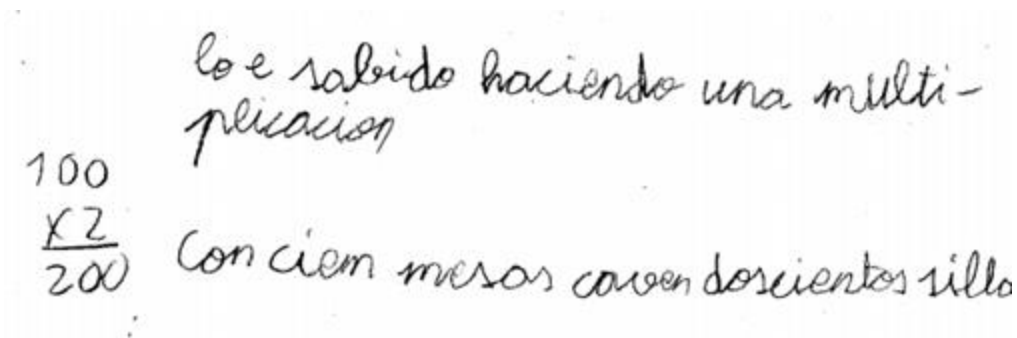 lo e sabido haciendo una multi-
plicacion
100
x2
200
Con ciem mesas caven doscientos silla